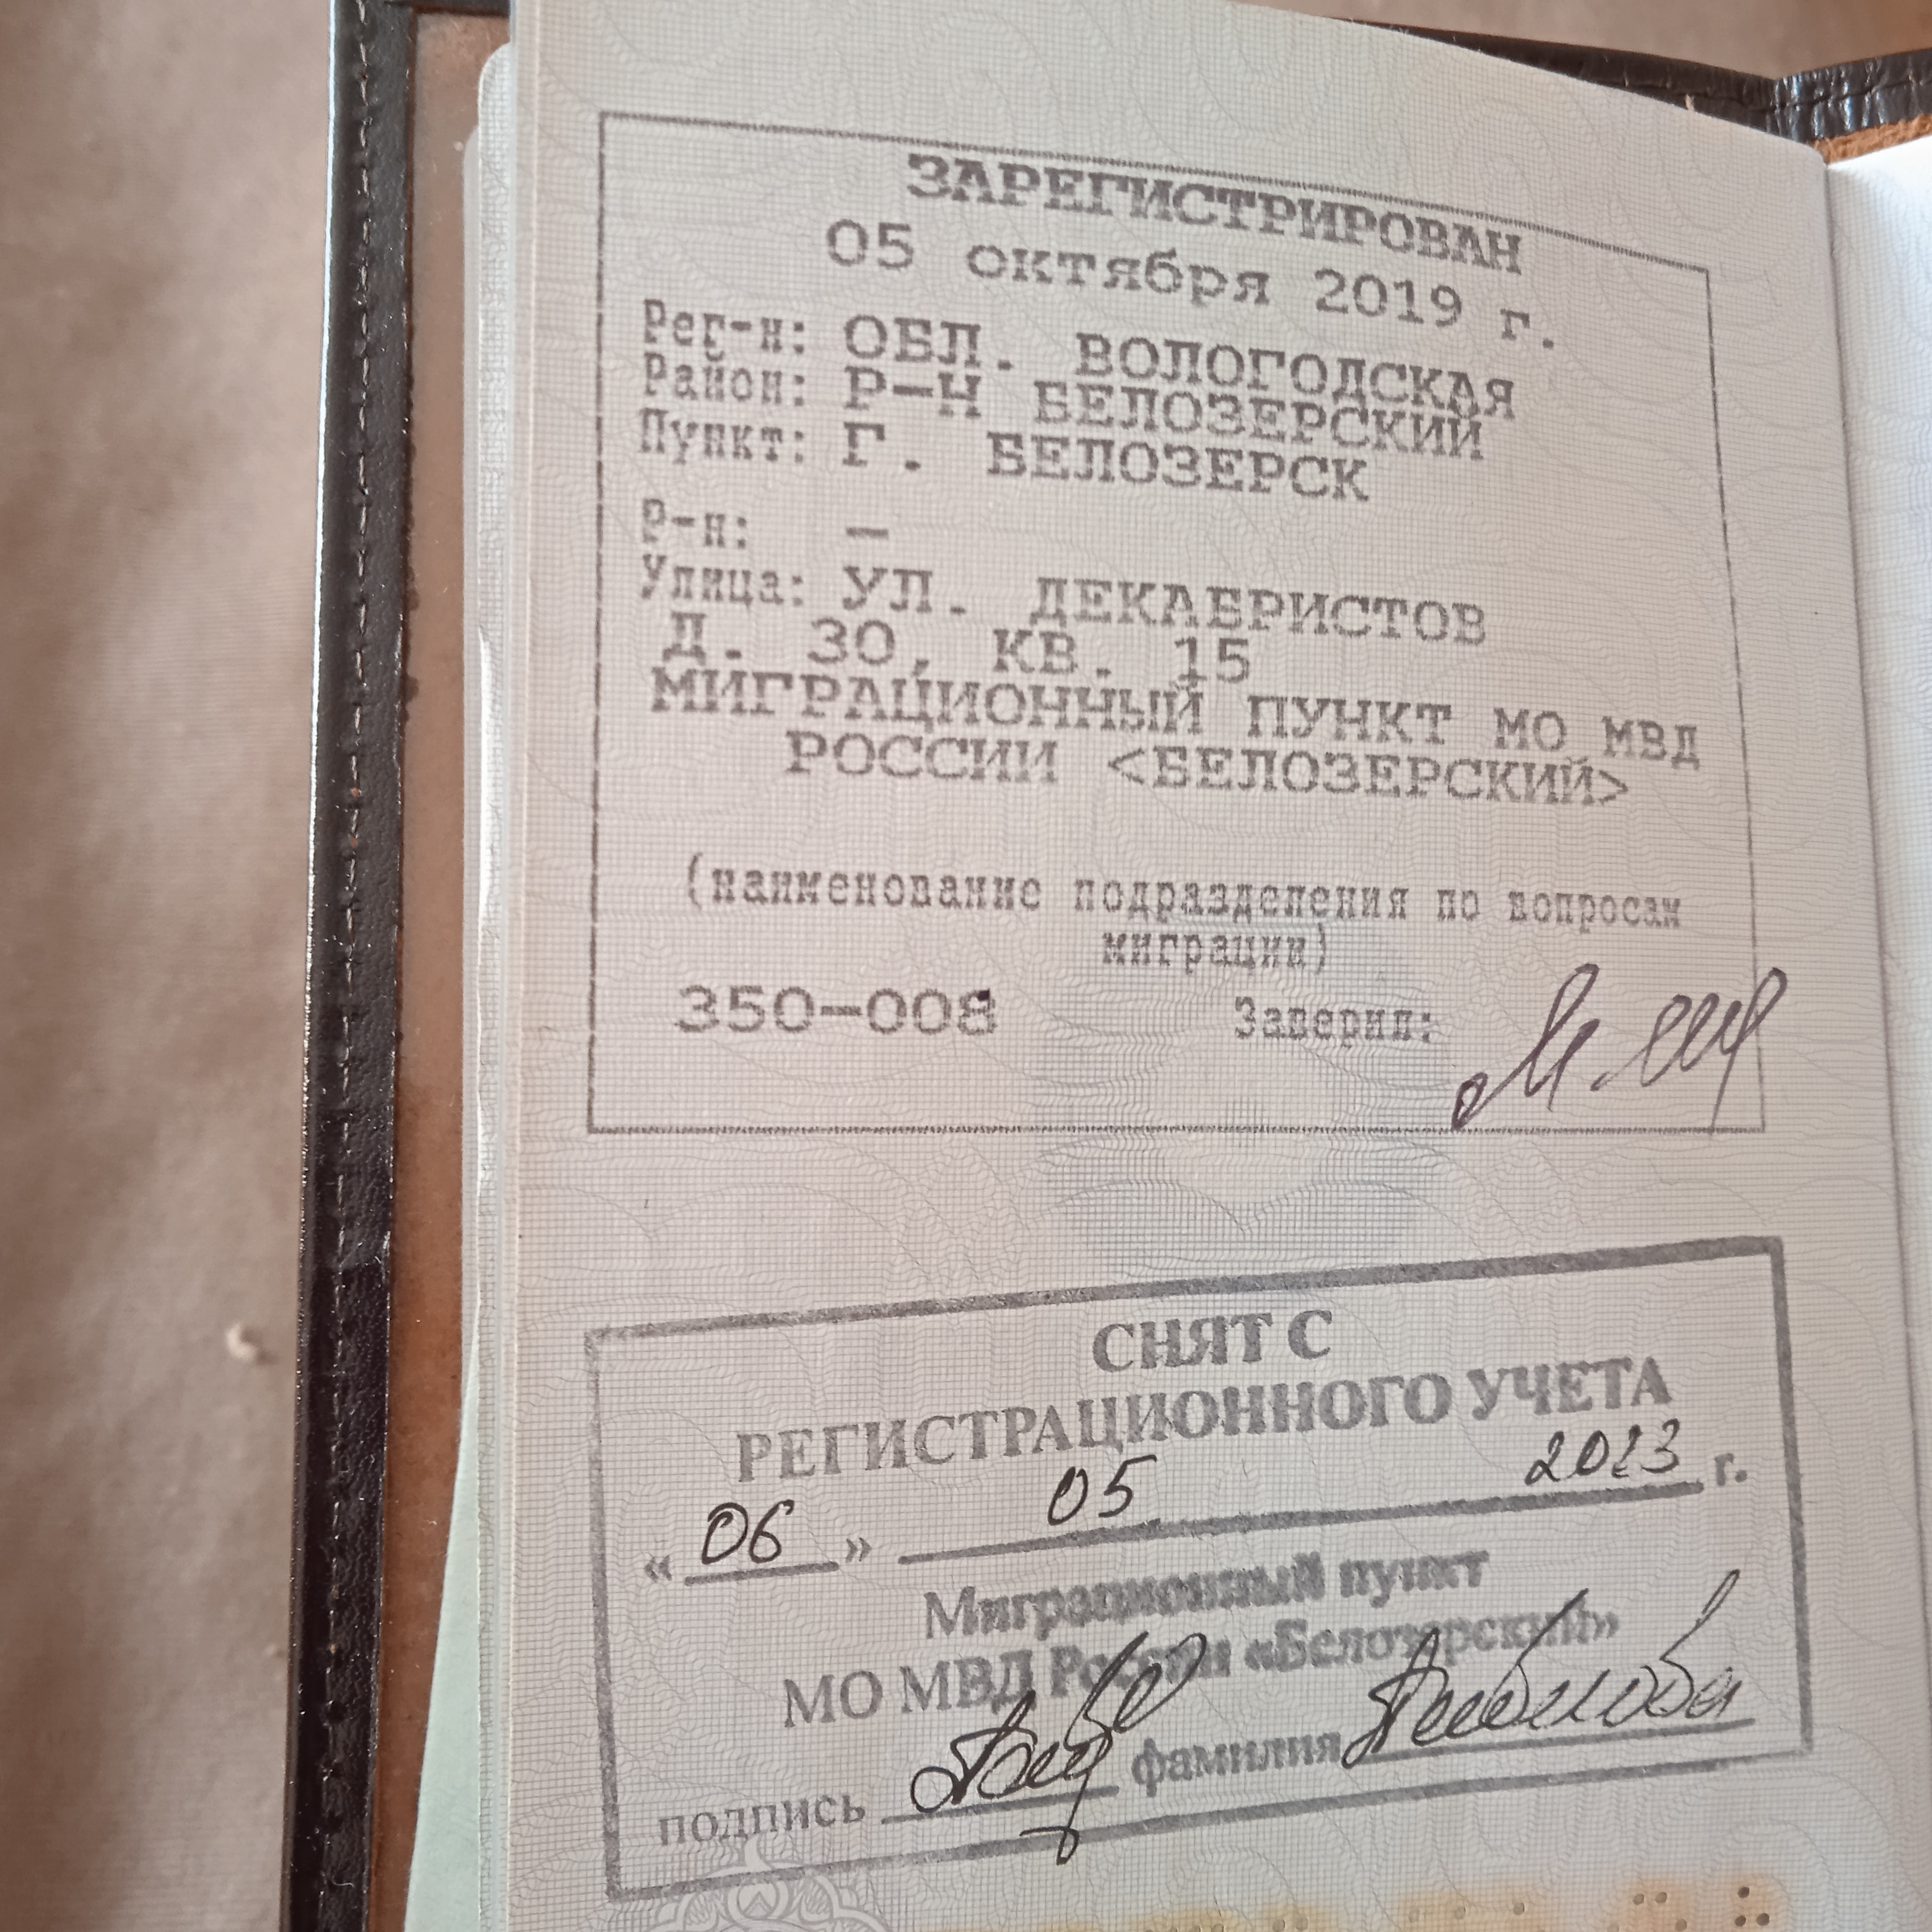 ЗАРЕГИСТРИРОВАН
05 октября 2019 г.
Рег-н: ОБЛ. ВОЛОГОДСКАЯ
Район: Р-Н БЕЛОЗЕРСКИЙ
Пункт: Г. БЕЛОЗЕРСК
Р-н: –
Улица: УЛ. ДЕКАБРИСТОВ
Д. 30, КВ. 15
МИГРАЦИОННЫЙ ПУНКТ МО МВД
РОССИИ <БЕЛОЗЕРСКИЙ>
(наименование подразделения по вопросам
миграции)
350-008 Заверил:
СНЯТ С
РЕГИСТРАЦИОННОГО УЧЕТА
« 06 » 05 2023 г.
Миграционный пункт
МО МВД России «Белозерский»
подпись фамилия